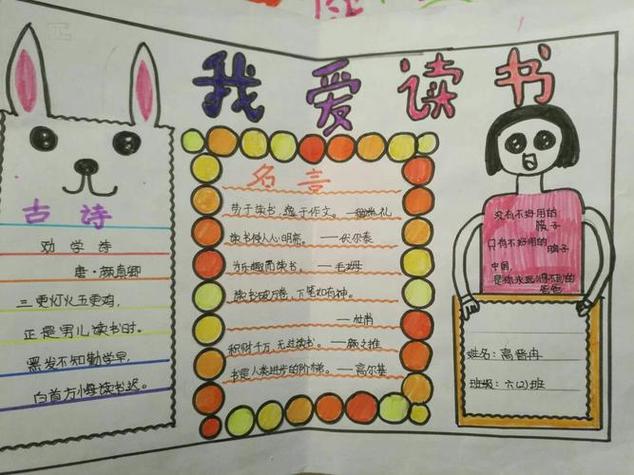 我爱读书
古诗
劝学诗
唐·颜真卿
三更灯火五更鸡，
正是男儿读书时。
黑发不知勤学早，
白首方悔读书迟。
名言
劳于读书，逸于作文。——程端礼
读书使人心明亮。——伏尔泰
为乐趣而读书。——毛姆
读书破万卷，下笔如有神。
——杜甫
积财千万，无过读书。——颜之推
书是人类进步的阶梯。——高尔基
没有不好用的
筷子
只有不好用的
脑子
中国，
姓名：高晋冉
班级：六(2)班